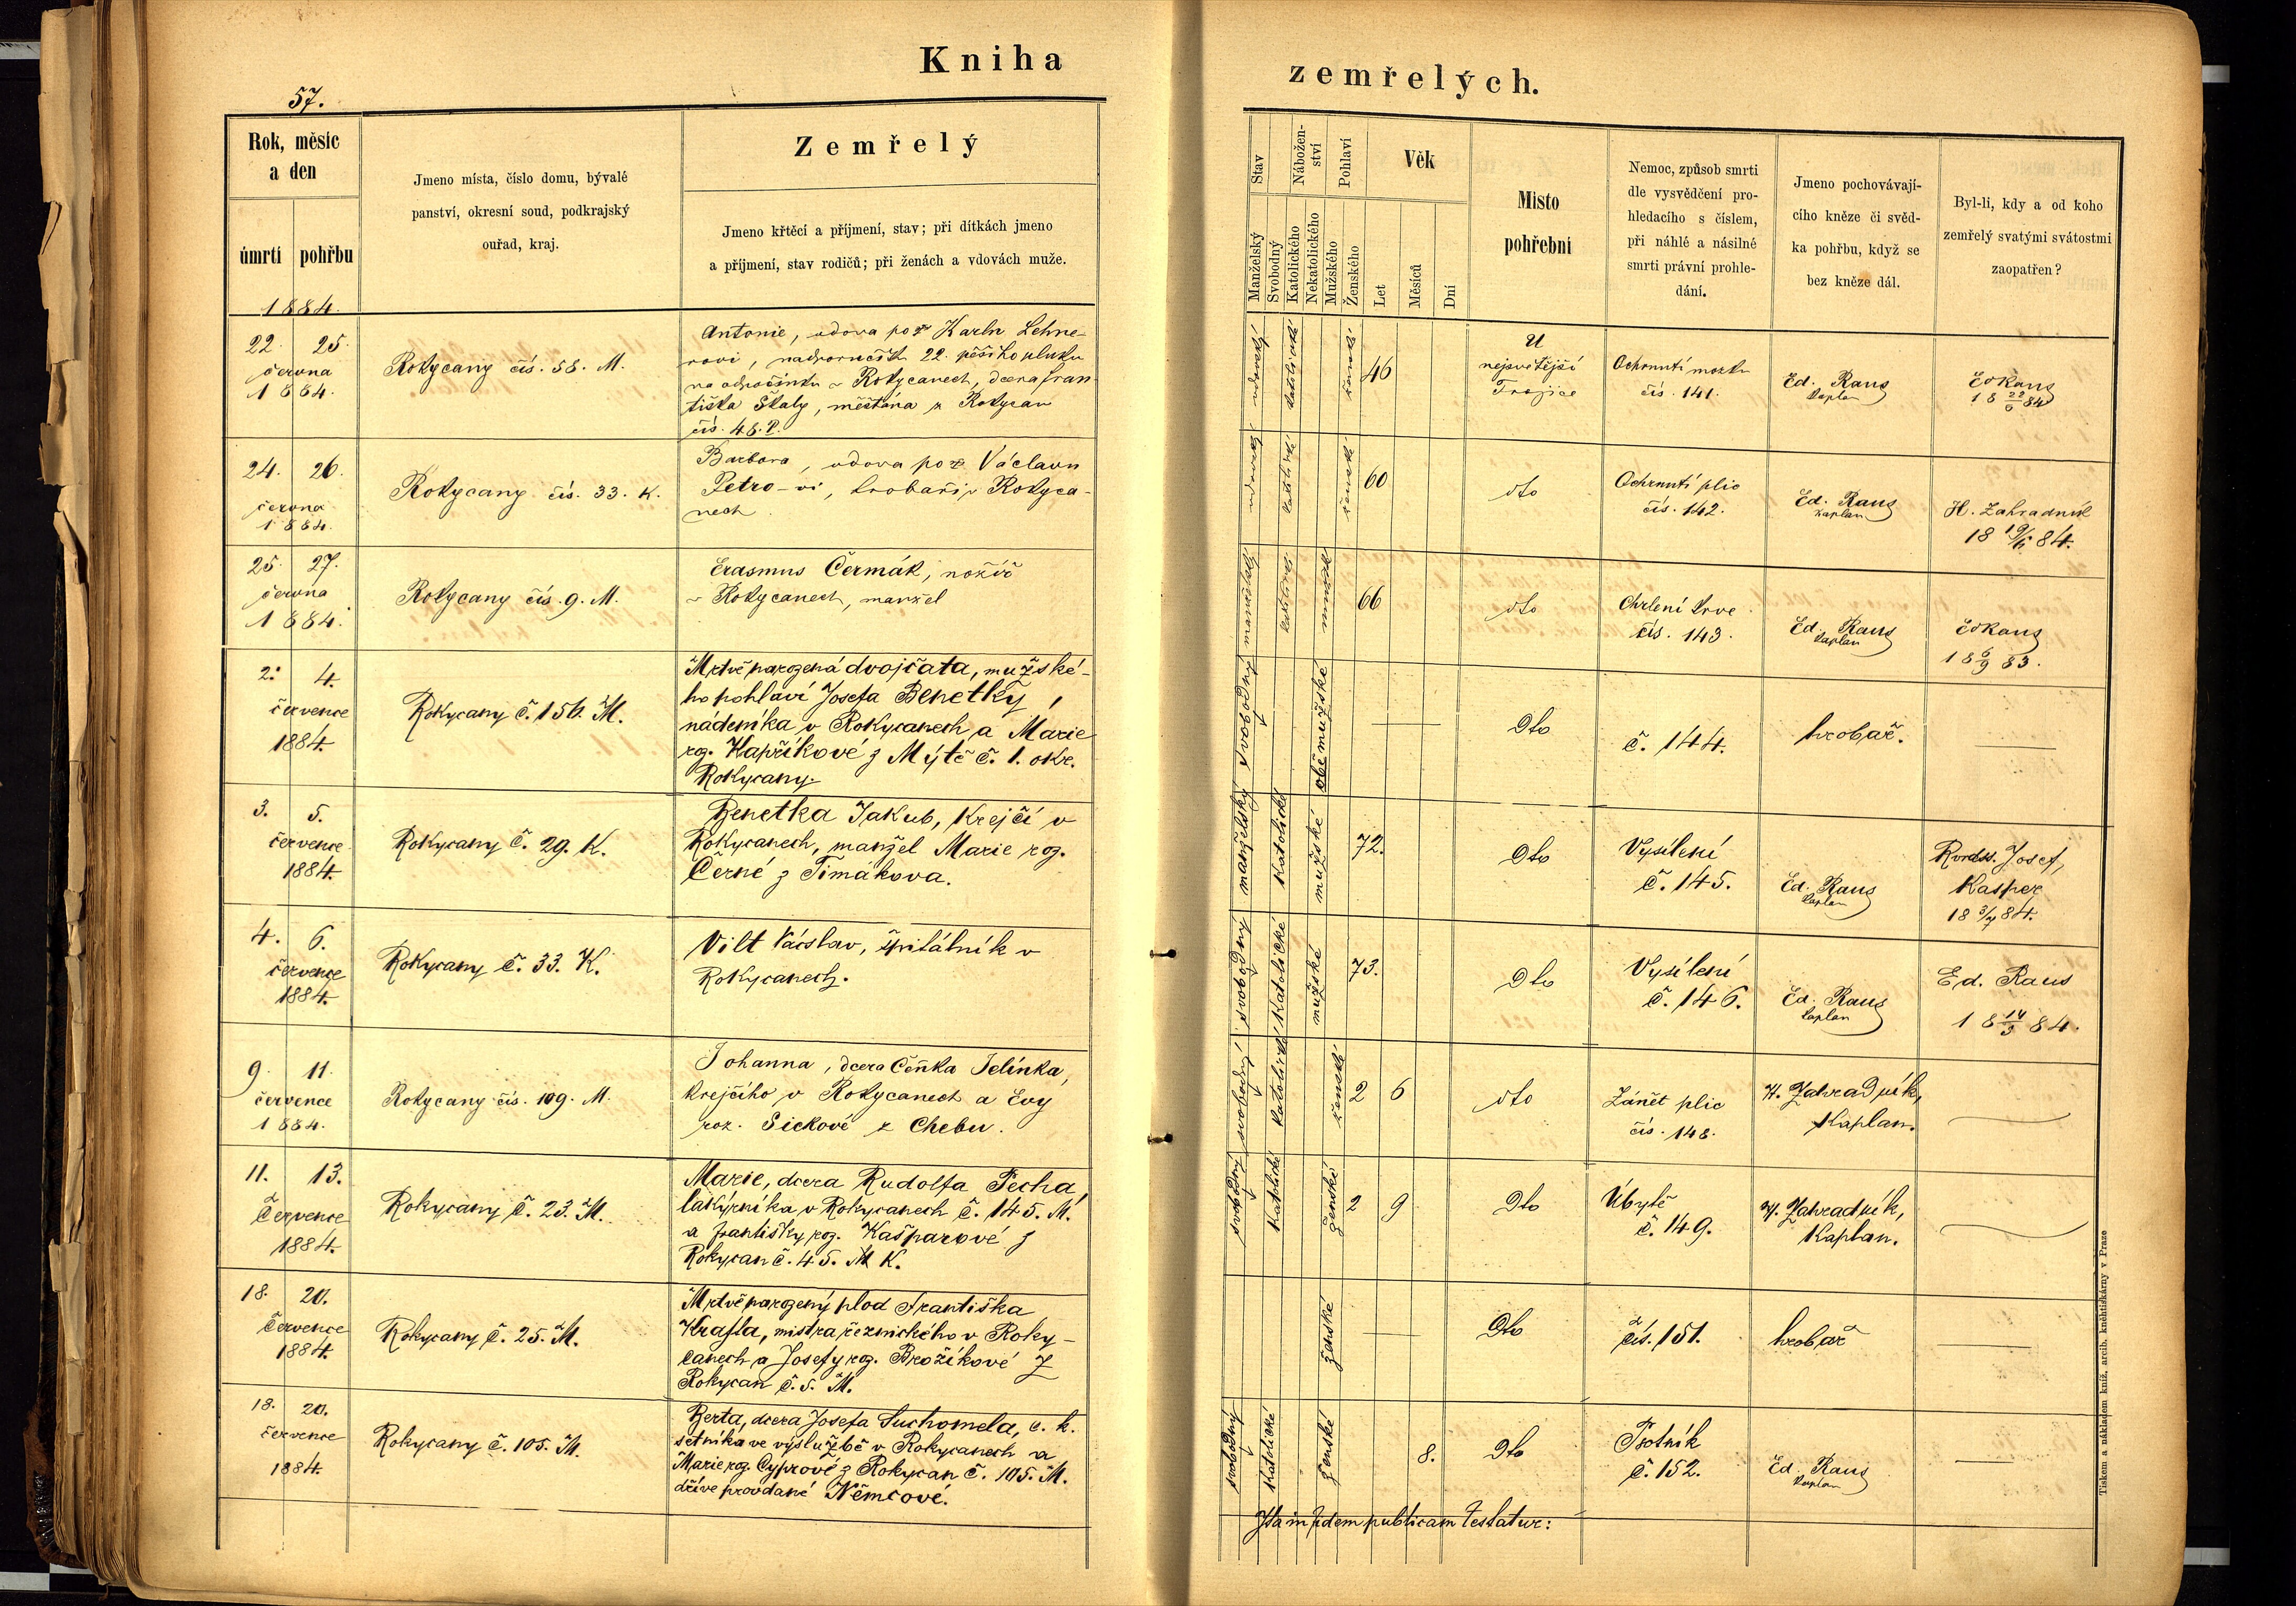 Kniha
57.
Rok, měsíc
a den
úmrtí
pohřbu
Jmeno místa, číslo domu, bývalé
panství, okresní soud, podkrajský
ouřad, kraj.
Zemřelý
Jmeno křtěcí a příjmení, stav; při dítkách jmeno
a příjmení, stav rodičů; při ženách a vdovách muže.
1884.
22. 25.
června
1884.
Rokycany čís. 58. M.
Antonie, vdova po Karlu Lehne-
rovi, 22. pěšího pluku
na odpočinku v Rokycanech, dcera Fran-
tiška Škaly, měšťana z Rokycan
čís. 48. P.
24. 26.
června
1884.
Rokycany čís. 33. K.
Barbora, vdova po Václavu
Petro-vi, hrobaři v Rokyca-
nech
25. 27.
června
1884.
Rokycany čís. 9. M.
Erasmus Čermák, nožíř
v Rokycanech, manžel
2. 4.
července
1884.
Rokycany č. 156. M.
Mrtvě narozená dvojčata, mužské-
ho pohlaví Josefa Benetky,
nádeníka v Rokycanech, a Marie
roz. Kapříkové z Mýtě č. 1. okr.
Rokycany.
3. 5.
července
1884.
Rokycany č. 29. K.
Benetka Jakub, krejčí v
Rokycanech, manžel Marie roz.
Černé z Timákova.
4. 6.
července
1884.
Rokycany č. 33. K.
Vilt Václav, špitálník v
Rokycanech.
9. 11.
července
1884.
Rokycany čís. 109. M.
Johanna, dcera Čeňka Jelínka,
krejčího v Rokycanech a Evy
roz. Sickové z Chebu.
11. 13.
Července
1884.
Rokycany č. 23. M.
Marie, dcera Rudolfa Pecha,
lakýrníka v Rokycanech č. 145. M.
a Františky roz. Kašparové z
Rokycan č. 45. M K.
18. 20.
Července
1884.
Rokycany č. 25. M.
Mrtvě narozený plod Františka
Krafta, mistra řeznického v Roky-
canech a Josefy roz. Brožíkové z
Rokycan č. 5. M.
18. 20.
července
1884.
Rokycany č. 105. M.
Berta, dcera Josefa Suchomela, c. k.
setníka ve výslužbě v Rokycanech a
Marie roz. Cyprové z Rokycan č. 105. M.
dříve provdané Němcové.
zemřelých.
Stav
Nábožen-
ství
Pohlaví
Věk
Manželský
Svobodný
Katolického
Nekatolického
Mužského
Ženského
Let
Měsíců
Dní
Místo
pohřební
Nemoc, způsob smrti
dle vysvědčení pro-
hledacího s číslem,
při náhlé a násilné
smrti právní prohle-
dání.
Jmeno pochovávají-
cího kněze či svěd-
ka pohřbu, když se
bez kněze dál.
Byl-li, kdy a od koho
zemřelý svatými svátostmi
zaopatřen?
vdovský katolické ženské 46
U
nejsvětější
Trojice
Ochrnutí mozku
čís. 141.
Ed. Raus
kaplan
Ed Raus
18 22/6 84
vdovský katolické ženské 60
dto
Ochrnutí plic
čís. 142.
Ed. Raus
kaplan
H. Zahradník
18 19/6 84.
manželský katolické mužské 66
dto
Chrlení krve
čís. 143.
Ed. Raus
kaplan
Ed Raus
18 6/9 83.
svobodný obě mužské
Dto
č. 144.
hrobař.
manželský katolické mužské 72.
Dto
Vysílení
č. 145.
Ed. Raus
kaplan
Josef
Kasper
18 3/7 84.
svobodný katolické mužské 73.
Dto
Vysílení
č. 146.
Ed. Raus
kaplan
Ed. Raus
18 14/5 84.
svobodný katolické ženské 2 6
dto
Zánět plic
čís. 148.
H. Zahradník,
Kaplan.
svobodný katolické ženské 2 9
Dto
Úbytě
č. 149.
H. Zahradník,
Kaplan.
ženské
Dto
čís. 151.
hrobař
svobodný katolické ženské 8.
Dto
Psotník
č. 152.
Ed. Raus
kaplan
Ita in fidem publicam testatur:
Tiskem a nákladem kníž. arcib. knihtiskárny v Praze